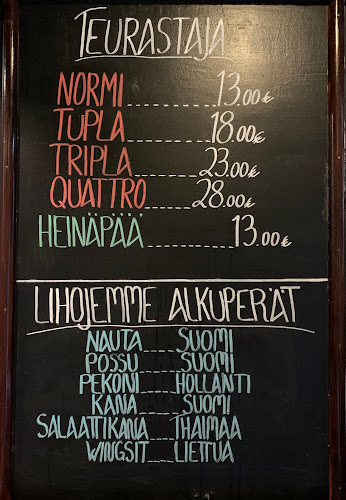 TEURASTAJA
NORMI______13.00€
TUPLA______18.00€
TRIPLA_____23.00€
QUATTRO____28.00€
HEINÄPÄÄ______13.00€
LIHOJEMME ALKUPERÄT
NAUTA____SUOMI
POSSU____SUOMI
PEKONI___HOLLANTI
KANA____SUOMI
SALAATTIKANA___THAIMAA
WINGSIT____LIETTUA